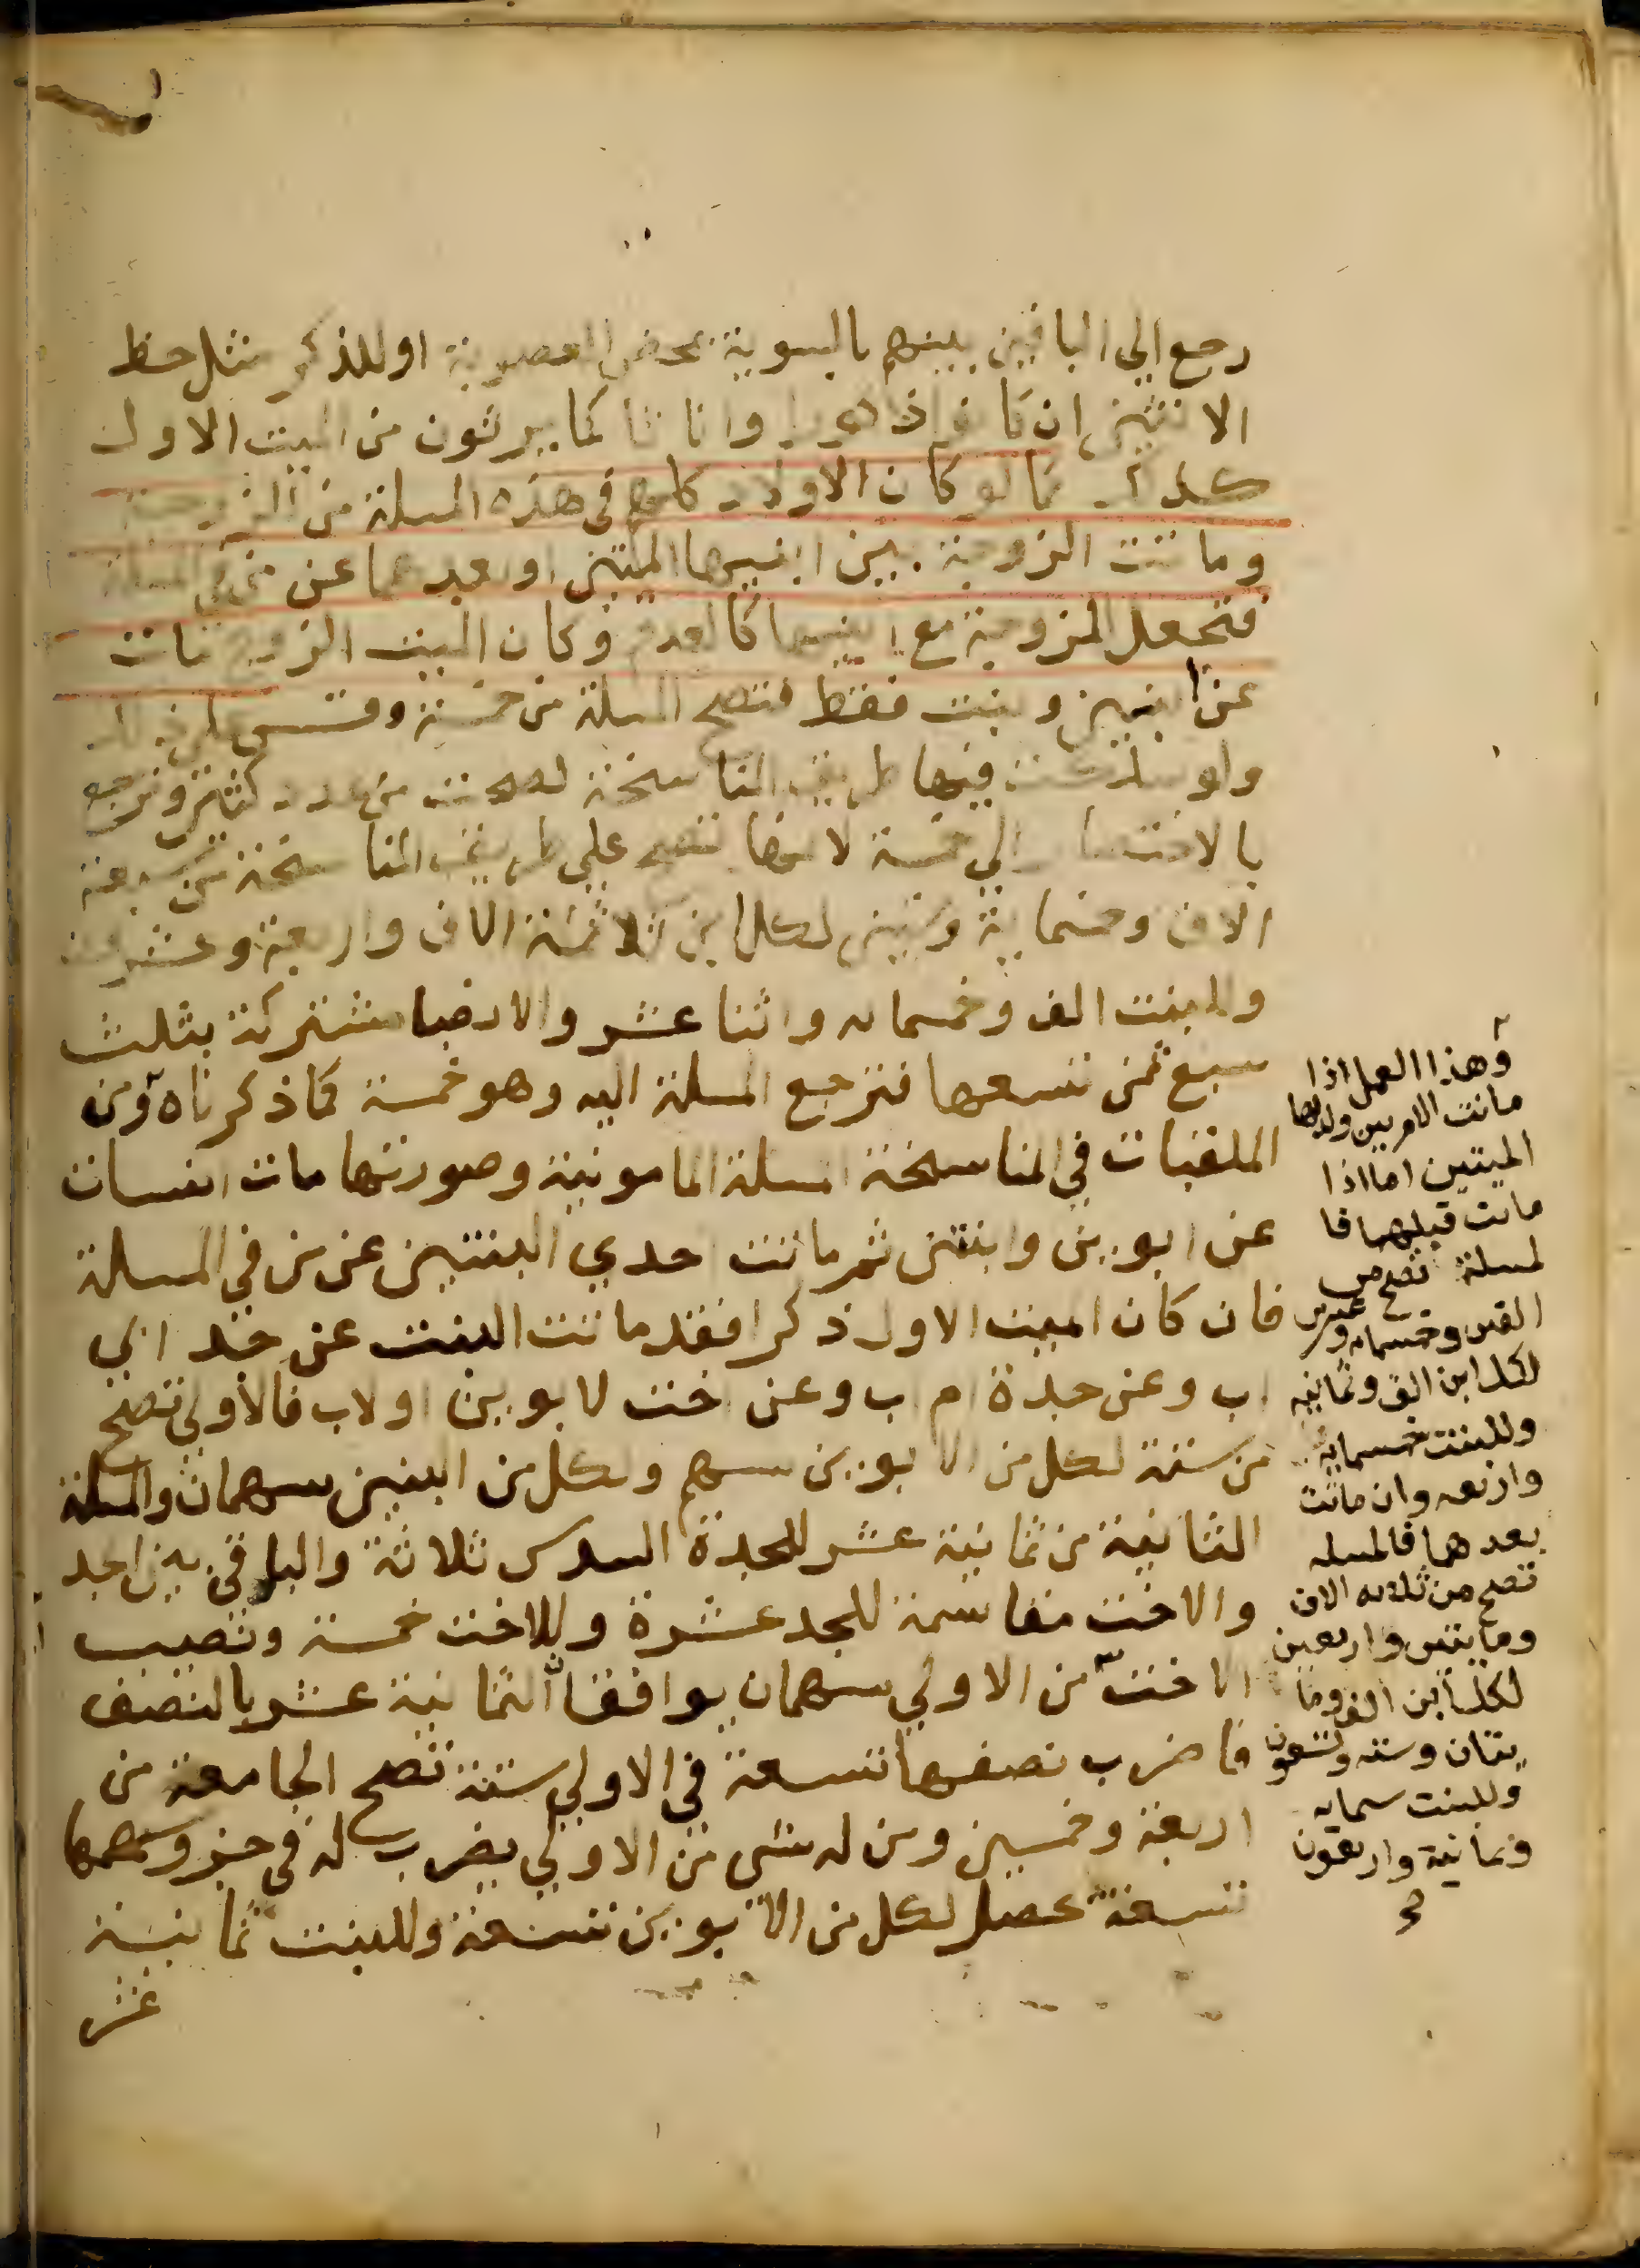 رجع الي الباقين بينهم بالسوية بمحض العصوبة او للذكر مثل حظ
الانثيين ان كانوا ذكورا واناثا كما يرثون من الميت الاول
كذلك كما لو كان الاولاد كلهم في هذه المسلة من الزوجة
وماتت الزوجة بين ابنيها الميتين او بعدهما عن من في المسلة
فتجعل الزوجة مع ابنيها كالعدم وكان الميت الزوج مات
عن ابنين وبنت فقط فتصح المسلة من خمسة وقس علي ذلك
ولو سلكت فيها طريق المناسخة لصحت من عدد كثير وترجع
بالاختصار الي خمسة لانها تصح علي طريق المناسخة من سبعة
الاف وخمماية وستين لكل ابن ثلاثة الاف واربعة وعشرون
وللبنت الف وخمسماىه واثنا عشر والانصبا مشتركة بثلث
سبع ثمن تسعها فترجع المسلة اليه وهو خمسة كما ذكرناه ومن
الملقبات في المناسخة المسلة المامونية وصورتها مات انسان
عن ابوين وابنتين ثم ماتت احدي البنتين عن من في المسلة
فان كان الميت الاول ذكرا فقد ماتت البنت عن جد ابي
اب وعن جدة ام اب وعن اخت لابوين او لاب فالاولي تصح
من ستة لكل من الابوين سهم ولكل من البنتين سهمان والمسلة
الثانية من ثمانية عشر للجدة السدس ثلاثة والباقي بين الجد
والاخت مقاسمة للجد عشرة وللاخت خمسة ونصيب
الاخت من الاولي سهمان يوافقا الثمانية عشر بالنصف
فاضرب نصفها تسعة في الاولي ستة تصح الجامعة من
اربعة وخمسين ومن له شي من الاولي يضرب له في جزو سهمها
تسعة يحصل لكل من الابوين تسعة وللبنت ثمانية
عشر
وهذا العمل اذا
ماتت الام بين ولديها
الميتين اما اذا
ماتت قبلهما فا
لمسلة تصح من
الفين وخمسمايه وعشرين
لكل ابن الف وثمانيه
وللبنت خمسمايه
واربعه وان ماتت
بعدهما فالمسله
تصح من ثلاثه الاف
ومايتين واربعين
لكل ابن الف وما
يتان وسته وتسعون
وللبنت ستمايه
وثمانية واربعون